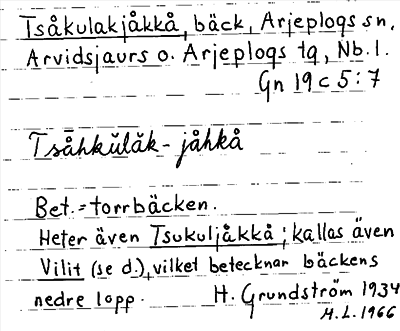 Tsåkulakjåkkå, bäck, Arjeplogs sn,
Arvidsjaurs o. Arjeplogs tg, Nb. l.
Gn 19 c 5:7
Tsåhkŭlăk-jåhkå
Bet. = torrbäcken.
Heter även Tsukuljåkkå; kallas även
Vilit (se d.), vilket betecknar bäckens
nedre lopp. H. Grundström 1934
M.L. 1966